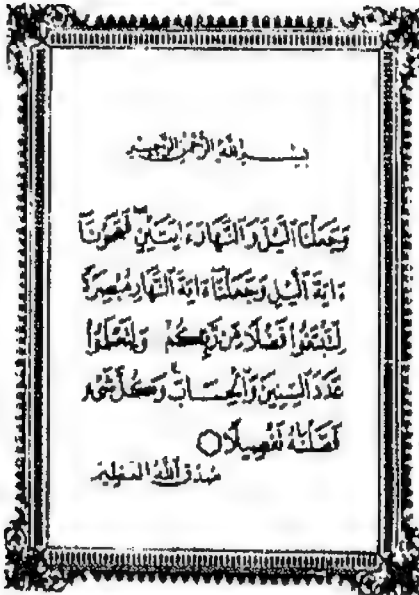 بِسْمِ اللَّهِ الرَّحْمَٰنِ الرَّحِيمِ
وَجَعَلْنَا الَّيْلَ وَالنَّهَارَ ءَايَتَيْنِ فَمَحَوْنَآ
ءَايَةَ الَّيْلِ وَجَعَلْنَآ ءَايَةَ النَّهَارِ مُبْصِرَةً
لِّتَبْتَغُوا فَضْلًا مِّن رَّبِّكُمْ وَلِتَعْلَمُوا
عَدَدَ السِّنِينَ وَالْحِسَابَ وَكُلَّ شَىْءٍ
فَصَّلْنَٰهُ تَفْصِيلًا
صدق الله العظيم